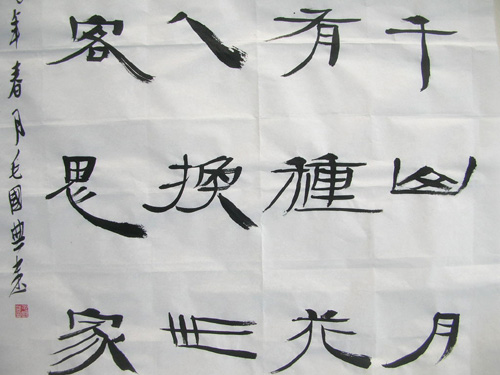 千山月
有種光
人換世
客思家
年春月毛國典書